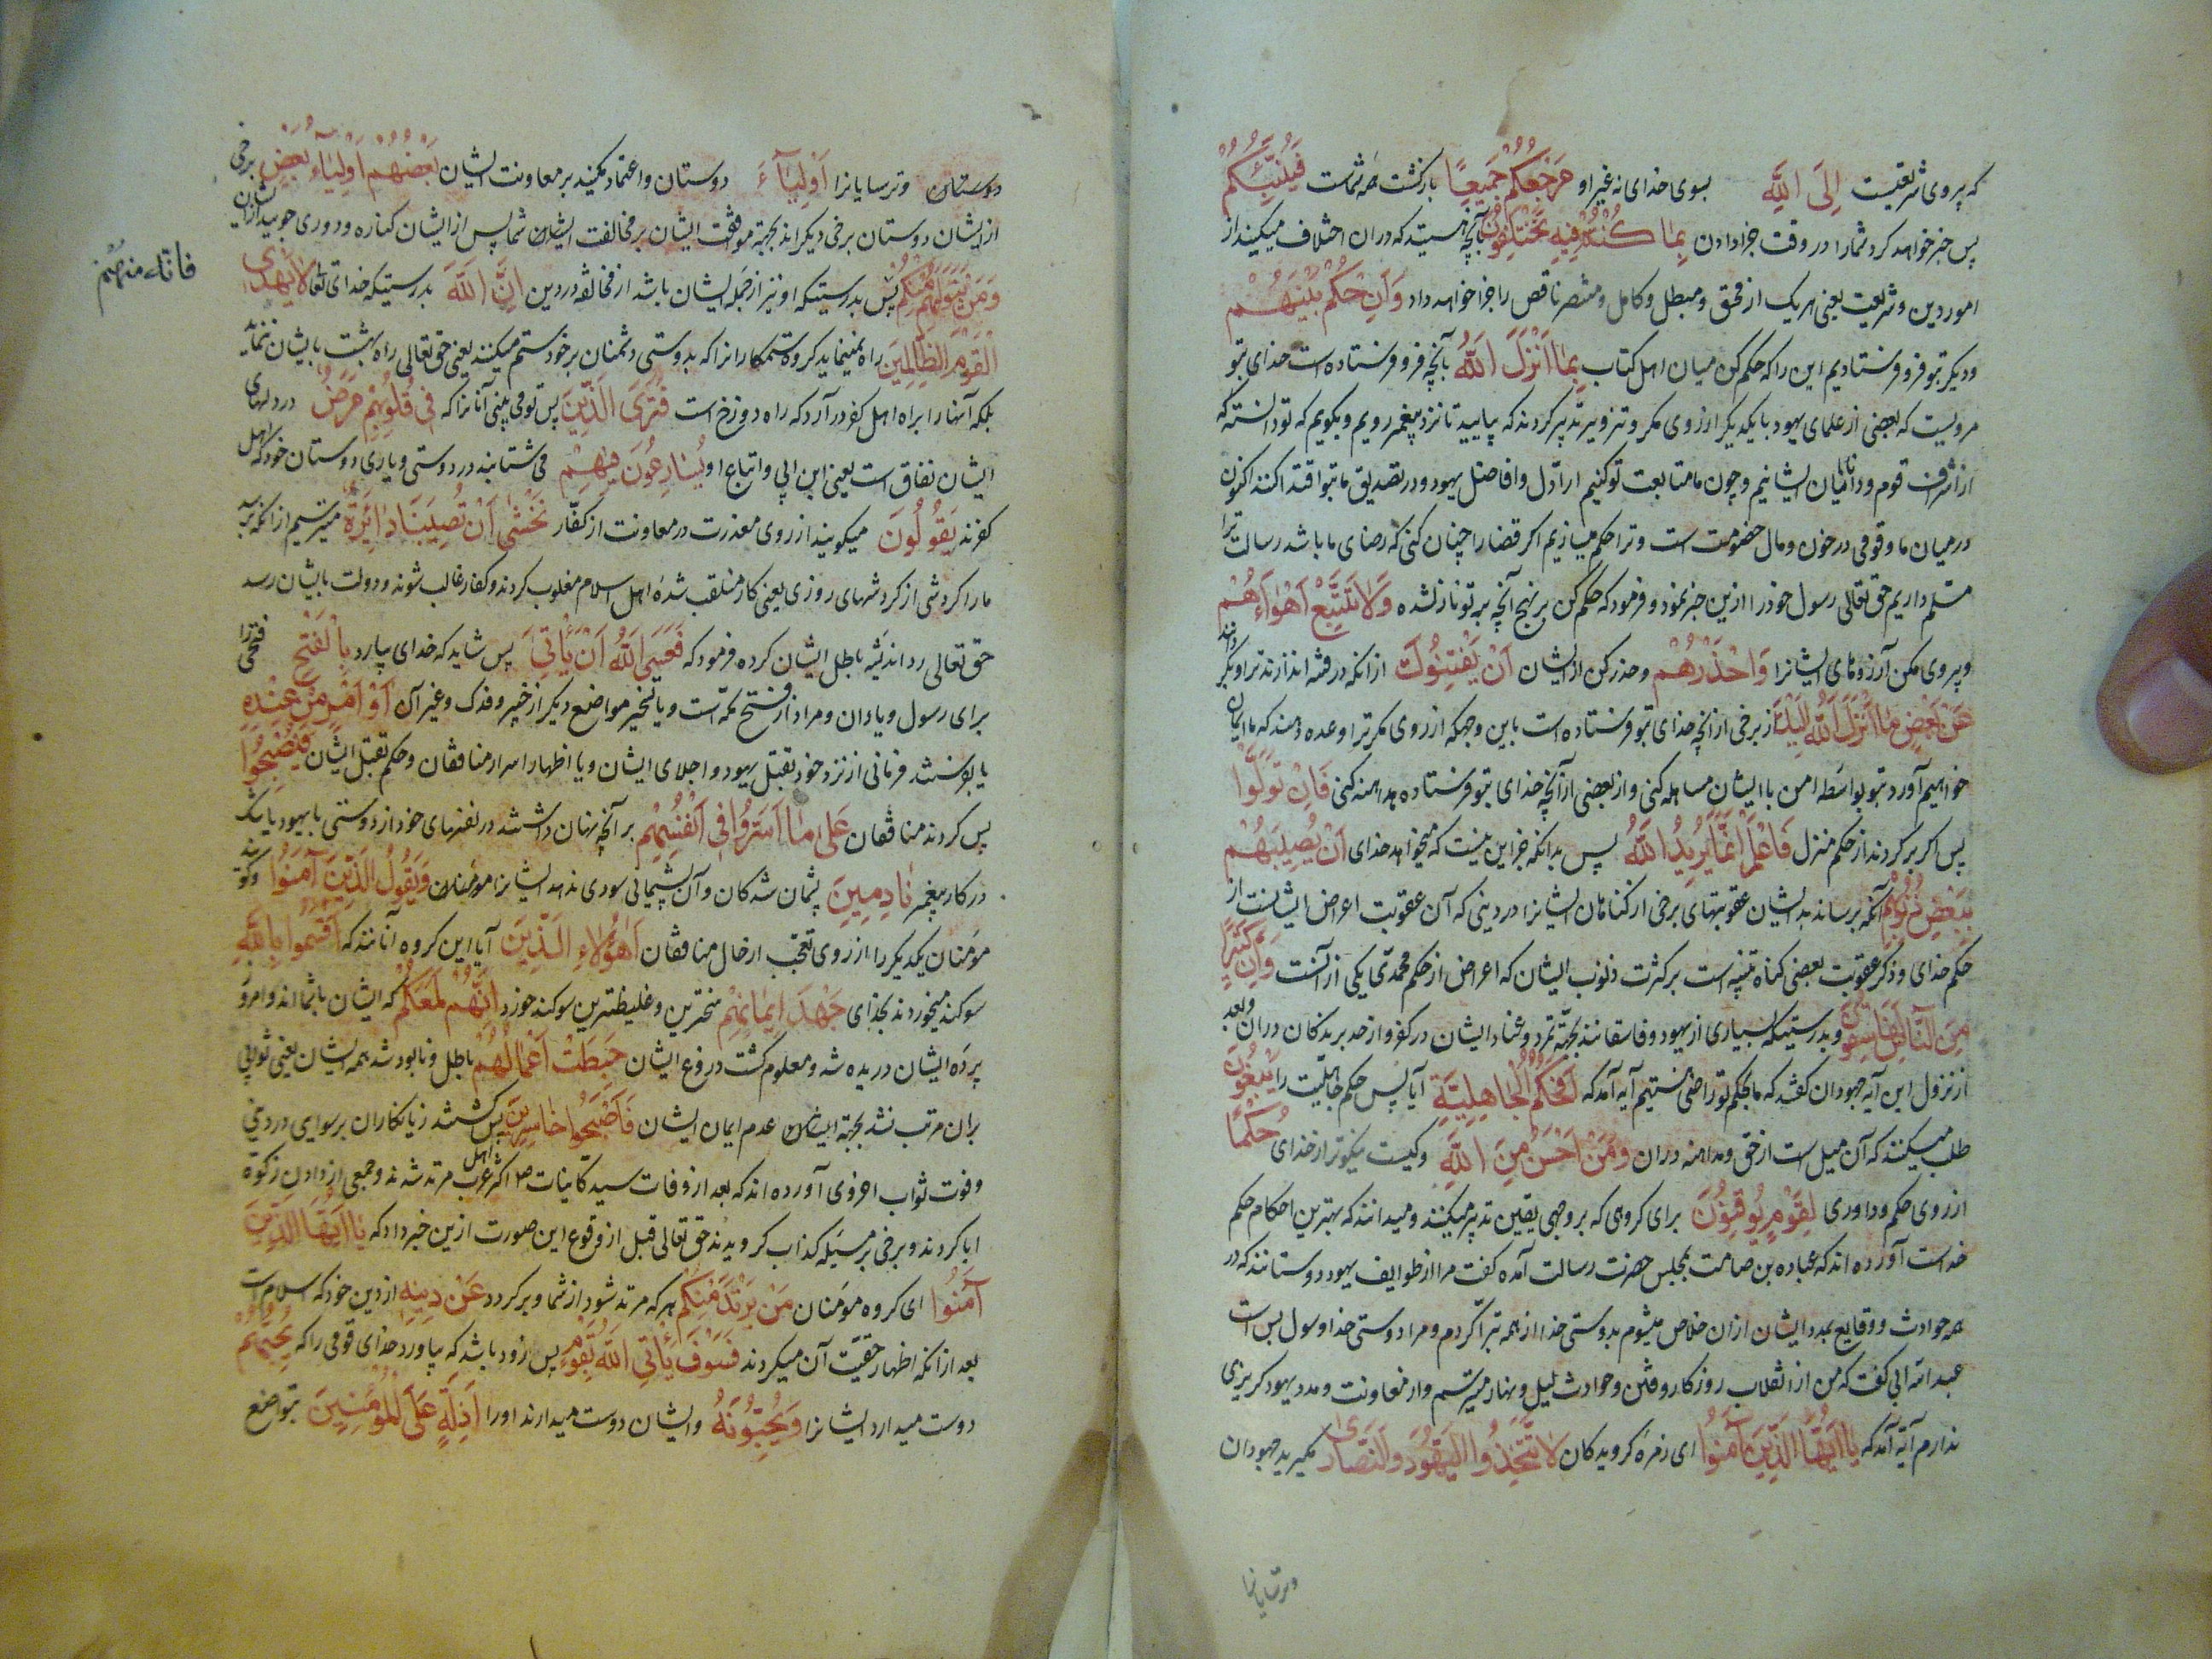 که پیروی شریعتست إِلَى اللَّهِ بسوی خدای نه غیر او مَرْجِعُكُمْ جَمِيعًا بازکشت همه شماست فَيُنَبِّئُكُمْ
پس خبر خواهد کرد شما را در وقت جزا دادن بِمَا كُنْتُمْ فِيهِ تَخْتَلِفُونَ بآنچه هستید که دران اختلاف میکنید از
امور دین و شریعت یعنی هر یک از محق و مبطل و کامل و مقصر ناقص را جزا خواهد داد وَأَنِ احْكُمْ بَيْنَهُمْ
و دیکر بتو فرو فرستادیم این را که حکم کن میان اهل کتاب بِمَا أَنْزَلَ اللَّهُ بآنچه فرو فرستاده است خدای بتو
مرویست که بعضی از علمای یهود با یکدیکر از روی مکر و تزویر تدبیر کردند که بیایید تا نزد پیغمبر رویم و بکویم که تو دانسته که
از اشراف قوم و دانایان ایشانیم و چون ما متابعت تو کنیم اراذل و افاضل یهود در تصدیق ما بتو اقتدا کنند اکنون
در میان ما و قومی در خون و مال خصومت است و ترا حکم میسازیم اکر قضا را چنان کنی که رضای ما باشد رسالت ترا
مسلم داریم حق تعالی رسول خود را ازین خبر نمود و فرمود که حکم کن بر نهج آنچه بر تو نازل شده وَلَا تَتَّبِعْ أَهْوَاءَهُمْ
و پیروی مکن آرزوهای ایشانرا وَاحْذَرْهُمْ و حذر کن از ایشان أَنْ يَفْتِنُوكَ از انکه در فتنه اندازند ترا و بکردانند
عَنْ بَعْضِ مَا أَنْزَلَ اللَّهُ إِلَيْكَ از برخی از انچه خدای بتو فرستاده است باین وجه که از روی مکر ترا وعده دهند که ما ایمان
خواهیم آورد بتو بواسطه امن با ایشان مساهله کنی و از بعضی از آنچه خدای بتو فرستاده مداهنه کنی فَإِنْ تَوَلَّوْا
پس اکر بر کردند از حکم منزل فَاعْلَمْ أَنَّمَا يُرِيدُ اللَّهُ پس بدانکه جز این نیست که میخواهد خدای أَنْ يُصِيبَهُمْ
بِبَعْضِ ذُنُوبِهِمْ آنکه برساند بدیشان عقوبتهای برخی از کناهان ایشانرا در دینی که آن عقوبت اعراض ایشانست از
حکم خدای و ذکر عقوبت بعضی کناه تنبیه است بر کثرت ذنوب ایشان که اعراض از حکم محمدی یکی از آنست وَإِنَّ كَثِيرًا
مِنَ النَّاسِ لَفَاسِقُونَ و بدرستیکه بسیاری از یهود فاسقانند بجهة تمرد و عناد ایشان در کفر و از حد بردکان دران و بعد
از نزول این آیه جهودان کفتند که ما بحکم تو راضی نیستیم آیه آمد که أَفَحُكْمَ الْجَاهِلِيَّةِ آیا پس حکم جاهلیت را يَبْغُونَ
طلب میکنند که آن میل است از حق و مداهنه دران وَمَنْ أَحْسَنُ مِنَ اللَّهِ و کیست نیکوتر از خدای حُكْمًا
از روی حکم و داوری لِقَوْمٍ يُوقِنُونَ برای کروهی که بر وجهی یقین تدبر میکنند و میدانند که بهترین احکام حکم
خداست آورده اند که عباده بن صامت بمجلس حضرت رسالت آمده کفت مرا از طوایف یهود دوستانند که در
همه حوادث و وقایع بمدد ایشان ازان خلاص میشوم بدوستی خدا از همه تبرا کردم و مرا دوستی خدا و رسول بس است
عبد الله ابی کفت که من از انقلاب روزکار و فتن و حوادث لیل و نهار میترسم و از معاونت و مدد یهود کریزی
ندارم آیه آمد که يَا أَيُّهَا الَّذِينَ آمَنُوا ای زمره کرویدکان لَا تَتَّخِذُوا الْيَهُودَ وَالنَّصَارَى مکیرید جهودان
و ترسایانرا
دوستان و ترسایانرا أَوْلِيَاءَ دوستان و اعتماد مکنید بر معاونت ایشان بَعْضُهُمْ أَوْلِيَاءُ بَعْضٍ برخی
از ایشان دوستان برخی دیکر اند بجهة موافقت ایشان بر مخالفت ایشان شما پس از ایشان کناره و دوری جویید
وَمَنْ يَتَوَلَّهُمْ مِنْكُمْ پس بدرستیکه او نیز از جمله ایشان باشد از مخالفه در دین إِنَّ اللَّهَ بدرستیکه خدای تعالی لَا يَهْدِي
فانه منهم
الْقَوْمَ الظَّالِمِينَ راه نمینماید کروه ستمکارانرا که بدوستی دشمنان بر خود ستم میکنند یعنی حق تعالی راه بهشت بایشان ننماید
بلکه آنها را براه اهل کفر در آرد که راه دوزخ است فَتَرَى الَّذِينَ پس تو می بینی آنانرا که فِي قُلُوبِهِمْ مَرَضٌ در دلهای
ایشان نفاق است یعنی ابن ابی و اتباع او يُسَارِعُونَ فِيهِمْ می شتابند در دوستی و یاری دوستان خود که اهل
کفرند يَقُولُونَ میکویند از روی معذرت در معاونت از کفار نَخْشَى أَنْ تُصِيبَنَا دَائِرَةٌ میترسیم از انکه برسد
ما را کردشی از کردشهای روزی یعنی کار منقلب شده اهل اسلام مغلوب کردند و کفار غالب شوند و دولت بایشان رسد
حق تعالی رد اندیشه باطل ایشان کرده فرمود که فَعَسَى اللَّهُ أَنْ يَأْتِيَ پس شاید که خدای بیارد بِالْفَتْحِ فتحی را
برای رسول و یاران و مراد از فتح فتح مکه است و یا تسخیر مواضع دیکر از خیبر و فدک و غیر آن أَوْ أَمْرٍ مِنْ عِنْدِهِ
یا بفرستد فرمانی از نزد خود بقتل یهود و اجلای ایشان و یا اظهار اسرار منافقان و حکم بقتل ایشان فَيُصْبِحُوا
پس کردند منافقان عَلَى مَا أَسَرُّوا فِي أَنْفُسِهِمْ بر آنچه پنهان داشتند در نفسهای خود از دوستی با یهود یا شک
در کار پیغمبر نَادِمِينَ پشیمان شدکان و آن پشیمانی سودی ندهد ایشانرا وَيَقُولُ الَّذِينَ آمَنُوا و کویند
مؤمنان یکدیکر را از روی تعجب از حال منافقان أَهَؤُلَاءِ الَّذِينَ آیا این کروه آنانند که أَقْسَمُوا بِاللَّهِ
سوکند میخوردند بخدای جَهْدَ أَيْمَانِهِمْ سختترین و غلیظترین سوکند خود إِنَّهُمْ لَمَعَكُمْ که ایشان با شمااند و امروز
پرده ایشان دریده شد و معلوم کشت دروغ ایشان حَبِطَتْ أَعْمَالُهُمْ باطل و نابود شد همه ایشان یعنی ثوابی
بران مرتب نشد بجهة ایشان عدم ایمان ایشان فَأَصْبَحُوا خَاسِرِينَ پس کشتند زیانکاران برسوایی در دینی
و فوت ثواب اخروی آورده اند که بعد از وفات سید کاینات اکثر اهل عرب مرتد شدند و جمعی از دادن زکوة
ابا کردند و برخی بر مسیلمه کذاب کرویدند حق تعالی قبل از وقوع این صورت ازین خبر داد که يَا أَيُّهَا الَّذِينَ
آمَنُوا ای کروه مؤمنان مَنْ يَرْتَدَّ مِنْكُمْ هر که مرتد شود از شما و بر کردد عَنْ دِينِهِ از دین خود که اسلام است
بعد از انکه اظهار حقیت آن میکردند فَسَوْفَ يَأْتِي اللَّهُ بِقَوْمٍ پس زود باشد که بیاورد خدای قومی را که يُحِبُّهُمْ
دوست میدارد ایشانرا وَيُحِبُّونَهُ و ایشان دوست میدارند او را أَذِلَّةٍ عَلَى الْمُؤْمِنِينَ بتواضع